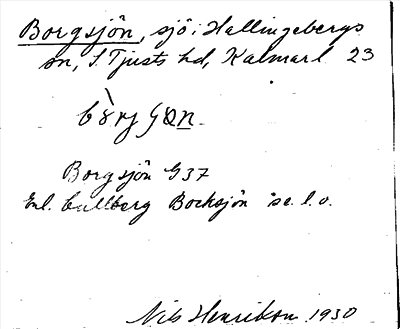 Borgsjön, sjö i Hallingebergs
sn, S. Tjusts hd, Kalmar l. 23
Borgsjön G37
Enl. Cullberg Bocksjön se. l. o.
Nils Henrikson 1930